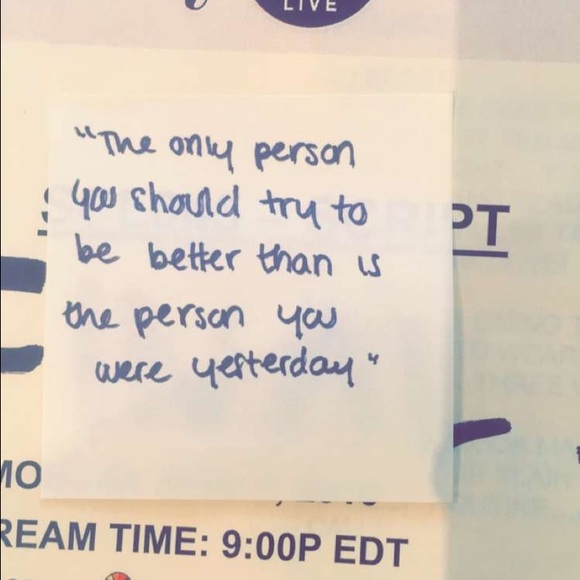 LIVE
"The only person
you should try to
be better than is
the person you
were yesterday"
PT
MO
REAM TIME: 9:00P EDT